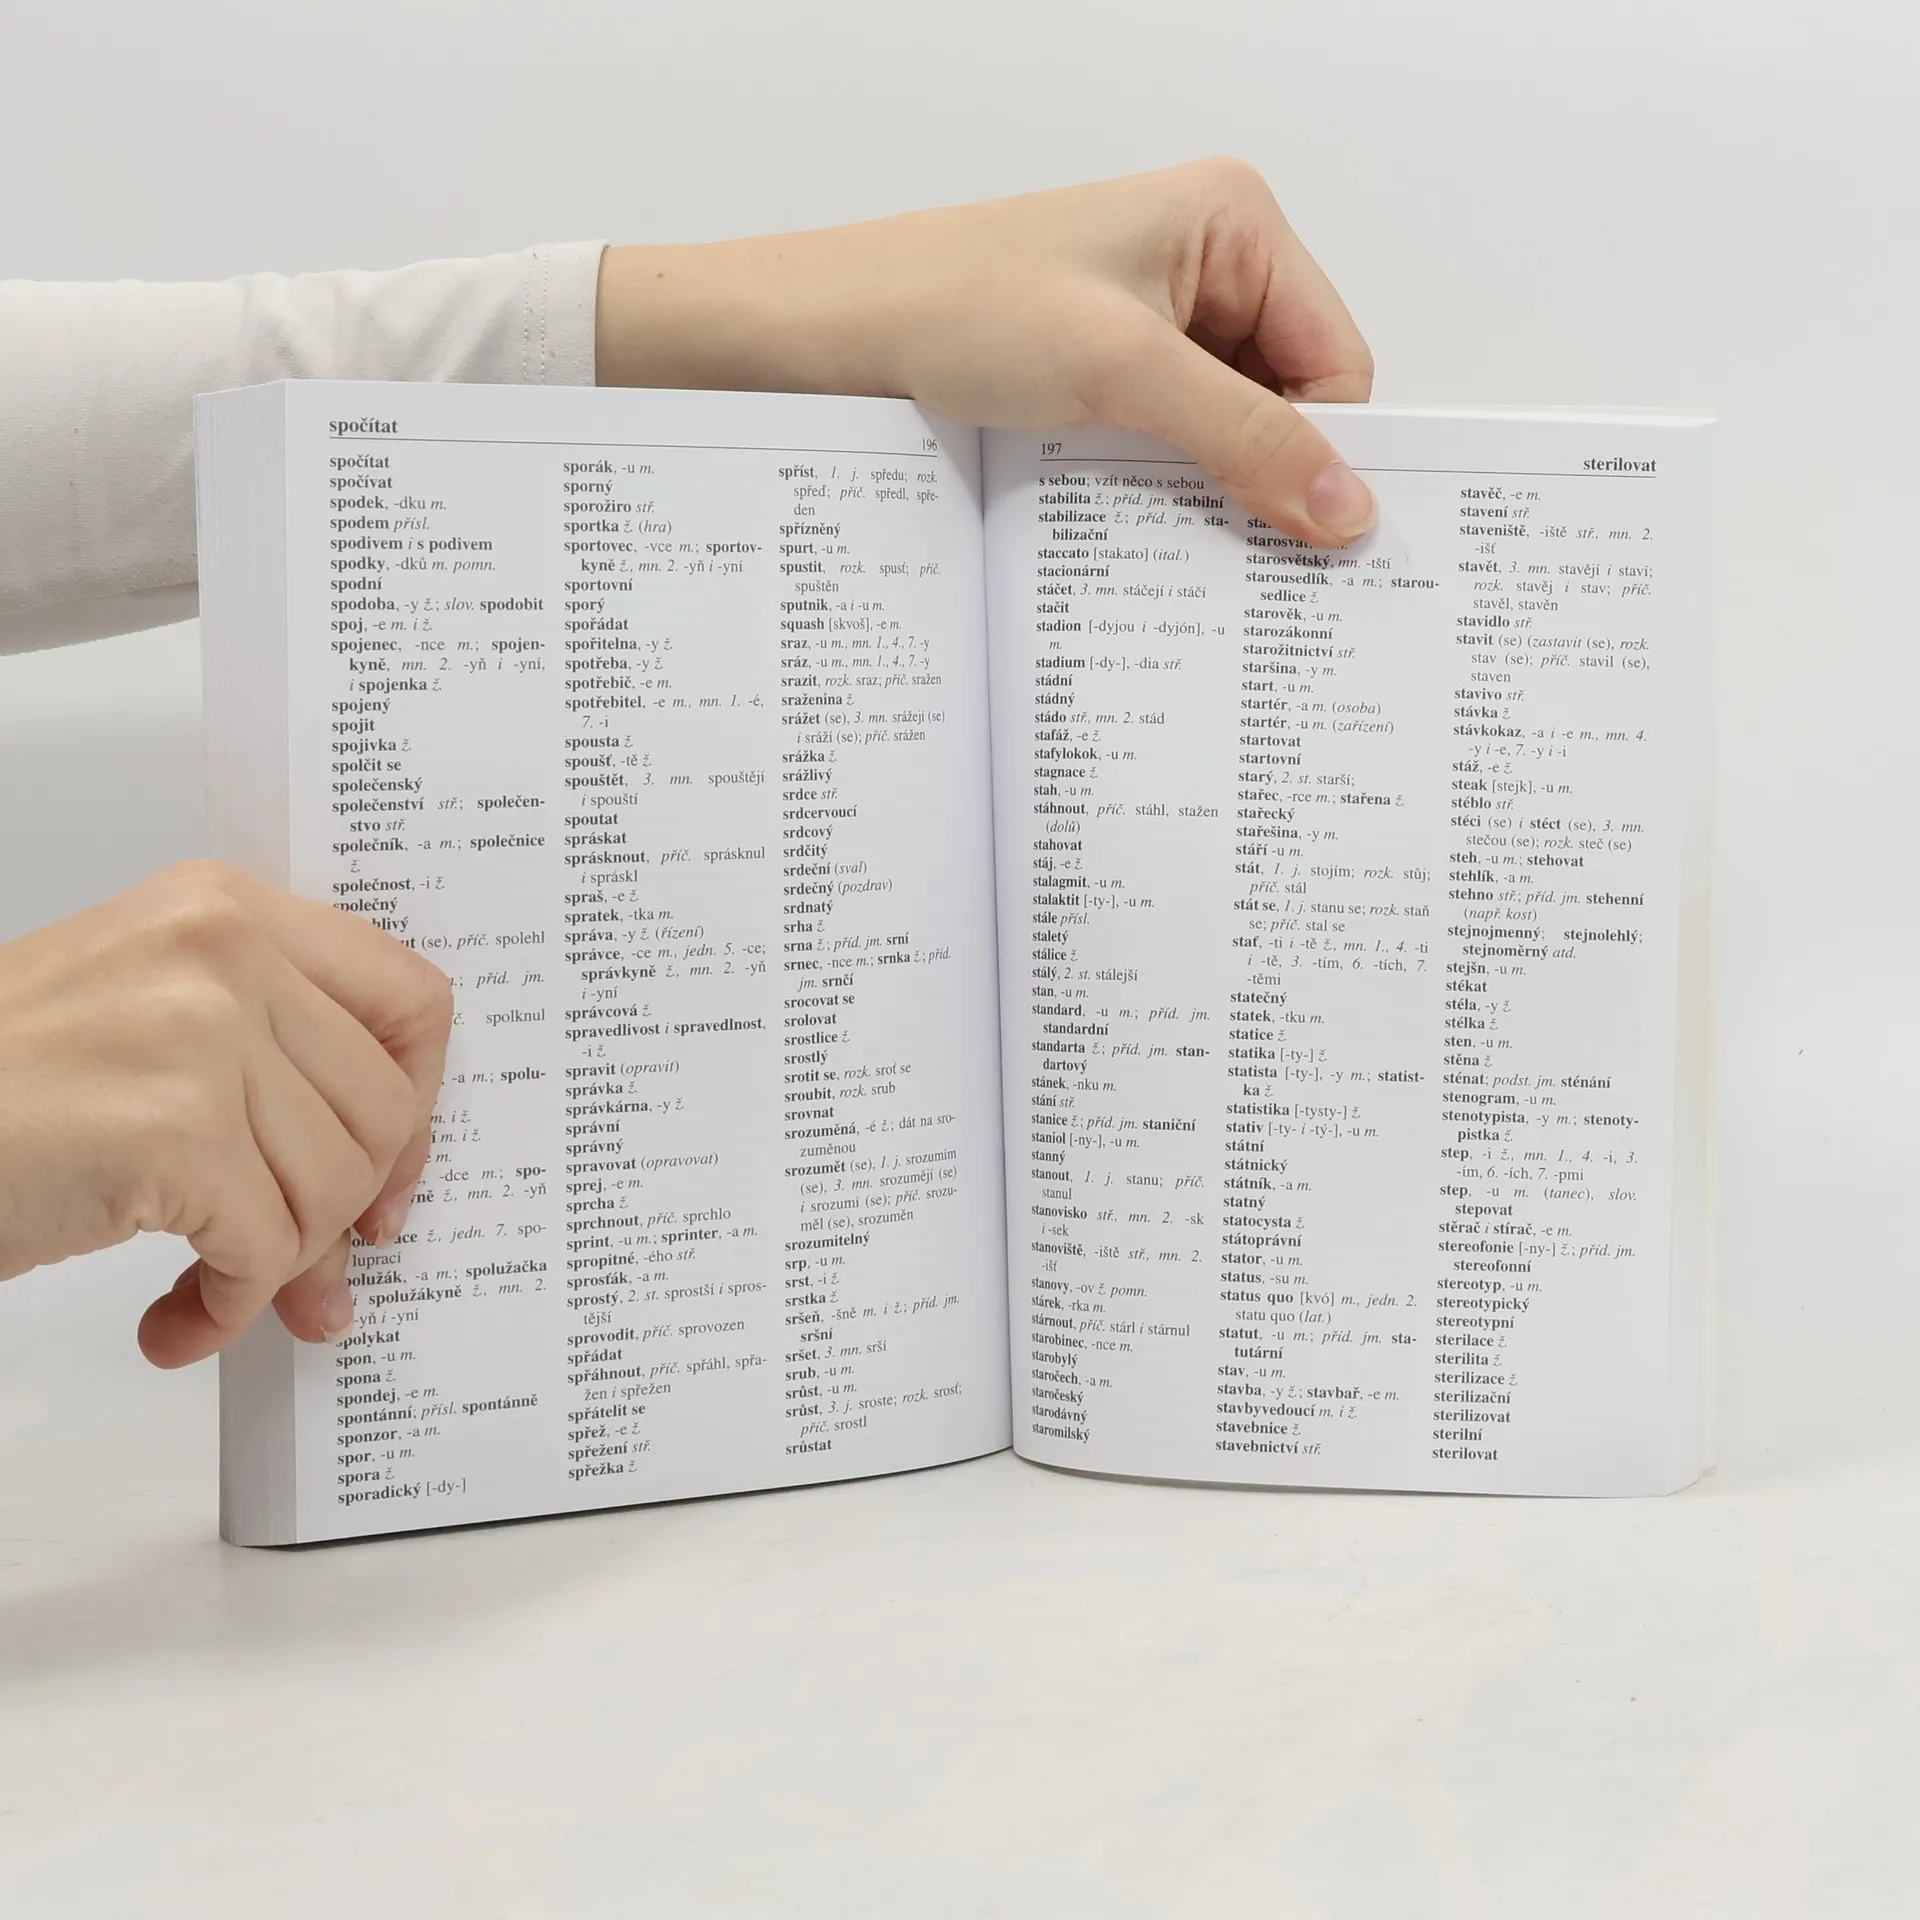 spočítat
196
spočítat
spočívat
spodek, -dku m.
spodem přísl.
spodivem i s podivem
spodky, -dků m. pomn.
spodní
spodoba, -y ž.; slov. spodobit
spoj, -e m. i ž.
spojenec, -nce m.; spojen-
kyně, mn. 2. -yň i -yní,
i spojenka ž.
spojený
spojit
spojivka ž.
spolčit se
společenský
společenství stř.; společen-
stvo stř.
společník, -a m.; společnice
ž.
společnost, -i ž.
společný
(se), příč. spolehl
příd. jm.
spolknul
-a m.; spolu-
m. i ž.
m. i ž.
m.
-dce m.; spo-
ž., mn. 2. -yň
ž., jedn. 7. spo-
luprací
-a m.; spolužačka
i spolužákyně ž., mn. 2.
-yň i -yní
spolykat
spon, -u m.
spona ž.
spondej, -e m.
spontánní; přísl. spontánně
sponzor, -a m.
spor, -u m.
spora ž.
sporadický [-dy-]
sporák, -u m.
sporný
sporožiro stř.
sportka ž. (hra)
sportovec, -vce m.; sportov-
kyně ž., mn. 2. -yň i -yní
sportovní
sporý
spořádat
spořitelna, -y ž.
spotřeba, -y ž.
spotřebič, -e m.
spotřebitel, -e m., mn. 1. -é,
7. -i
spousta ž.
spoušť, -tě ž.
spouštět, 3. mn. spouštějí
i spouští
spoutat
spráskat
sprásknout, příč. sprásknul
i spráskl
spraš, -e ž.
spratek, -tka m.
správa, -y ž. (řízení)
správce, -ce m., jedn. 5. -ce;
správkyně ž., mn. 2. -yň
i -yní
správcová ž.
spravedlivost i spravedlnost,
-i ž.
spravit (opravit)
správka ž.
správkárna, -y ž.
správní
správný
spravovat (opravovat)
sprej, -e m.
sprcha ž.
sprchnout, příč. sprchlo
sprint, -u m.; sprinter, -a m.
spropitné, -ého stř.
sprosťák, -a m.
sprostý, 2. st. sprostší i spros-
tější
sprovodit, příč. sprovozen
spřádat
spřáhnout, příč. spřáhl, spřa-
žen i spřežen
spřátelit se
spřež, -e ž.
spřežení stř.
spřežka ž.
spříst, 1. j. spředu; rozk.
spřeď; příč. spředl, spře-
den
spřízněný
spurt, -u m.
spustit, rozk. spusť; příč.
spuštěn
sputnik, -a i -u m.
squash [skvoš], -e m.
sraz, -u m., mn. 1., 4., 7. -y
sráz, -u m., mn. 1., 4., 7. -y
srazit, rozk. sraz; příč. sražen
sraženina ž.
srážet (se), 3. mn. srážejí (se)
i sráží (se); příč. srážen
srážka ž.
srážlivý
srdce stř.
srdcervoucí
srdcový
srdčitý
srdeční (sval)
srdečný (pozdrav)
srdnatý
srha ž.
srna ž.; příd. jm. srní
srnec, -nce m.; srnka ž.; příd.
jm. srnčí
srocovat se
srolovat
srostlice ž.
srostlý
srotit se, rozk. sroť se
sroubit, rozk. srub
srovnat
srozuměná, -é ž.; dát na sro-
zuměnou
srozumět (se), 1. j. srozumím
(se), 3. mn. srozumějí (se)
i srozumí (se); příč. srozu-
měl (se), srozuměn
srozumitelný
srp, -u m.
srst, -i ž.
srstka ž.
sršeň, -šně m. i ž.; příd. jm.
sršní
sršet, 3. mn. srší
srub, -u m.
srůst, -u m.
srůst, 3. j. sroste; rozk. srosť;
příč. srostl
srůstat
197
sterilovat
s sebou; vzít něco s sebou
stabilita ž.; příd. jm. stabilní
stabilizace ž.; příd. jm. sta-
bilizační
staccato [stakato] (ital.)
stacionární
stáčet, 3. mn. stáčejí i stáčí
stačit
stadion [-dyjou i -dyjón], -u
m.
stadium [-dy-], -dia stř.
stádní
stádný
stádo stř., mn. 2. stád
stafáž, -e ž.
stafylokok, -u m.
stagnace ž.
stah, -u m.
stáhnout, příč. stáhl, stažen
(dolů)
stahovat
stáj, -e ž.
stalagmit, -u m.
stalaktit [-ty-], -u m.
stále přísl.
staletý
stálice ž.
stálý, 2. st. stálejší
stan, -u m.
standard, -u m.; příd. jm.
standardní
standarta ž.; příd. jm. stan-
dartový
stánek, -nku m.
stání stř.
stanice ž.; příd. jm. staniční
staniol [-ny-], -u m.
stanný
stanout, 1. j. stanu; příč.
stanul
stanovisko stř., mn. 2. -sk
i -sek
stanoviště, -iště stř., mn. 2.
-išť
stanovy, -ov ž. pomn.
stárek, -rka m.
stárnout, příč. stárl i stárnul
starobinec, -nce m.
starobylý
staročech, -a m.
staročeský
starodávný
staromilský
starosvětský, mn. -tští
starousedlík, -a m.; starou-
sedlice ž.
starověk, -u m.
starozákonní
starožitnictví stř.
staršina, -y m.
start, -u m.
startér, -a m. (osoba)
startér, -u m. (zařízení)
startovat
startovní
starý, 2. st. starší;
stařec, -rce m.; stařena ž.
stařecký
stařešina, -y m.
stáří -u m.
stát, 1. j. stojím; rozk. stůj;
příč. stál
stát se, 1. j. stanu se; rozk. staň
se; příč. stal se
stať, -ti i -tě ž., mn. 1., 4. -ti
i -tě, 3. -tím, 6. -tích, 7.
-těmi
statečný
statek, -tku m.
statice ž.
statika [-ty-] ž.
statista [-ty-], -y m.; statist-
ka ž.
statistika [-tysty-] ž.
stativ [-ty- i -tý-], -u m.
státní
státnický
státník, -a m.
statný
statocysta ž.
státoprávní
stator, -u m.
status, -su m.
status quo [kvó] m., jedn. 2.
statu quo (lat.)
statut, -u m.; příd. jm. sta-
tutární
stav, -u m.
stavba, -y ž.; stavbař, -e m.
stavbyvedoucí m. i ž.
stavebnice ž.
stavebnictví stř.
stavěč, -e m.
stavení stř.
staveniště, -iště stř., mn. 2.
-išť
stavět, 3. mn. stavějí i staví;
rozk. stavěj i stav; příč.
stavěl, stavěn
stavidlo stř.
stavit (se) (zastavit (se), rozk.
stav (se); příč. stavil (se),
staven
stavivo stř.
stávka ž.
stávkokaz, -a i -e m., mn. 4.
-y i -e, 7. -y i -i
stáž, -e ž.
steak [stejk], -u m.
stéblo stř.
stéci (se) i stéct (se), 3. mn.
stečou (se); rozk. steč (se)
steh, -u m.; stehovat
stehlík, -a m.
stehno stř.; příd. jm. stehenní
(např. kost)
stejnojmenný; stejnolehlý;
stejnoměrný atd.
stejšn, -u m.
stékat
stéla, -y ž.
stélka ž.
sten, -u m.
stěna ž.
sténat; podst. jm. sténání
stenogram, -u m.
stenotypista, -y m.; stenoty-
pistka ž.
step, -i ž., mn. 1., 4. -i, 3.
-ím, 6. -ích, 7. -pmi
step, -u m. (tanec), slov.
stepovat
stěrač i stírač, -e m.
stereofonie [-ny-] ž.; příd. jm.
stereofonní
stereotyp, -u m.
stereotypický
stereotypní
sterilace ž.
sterilita ž.
sterilizace ž.
sterilizační
sterilizovat
sterilní
sterilovat